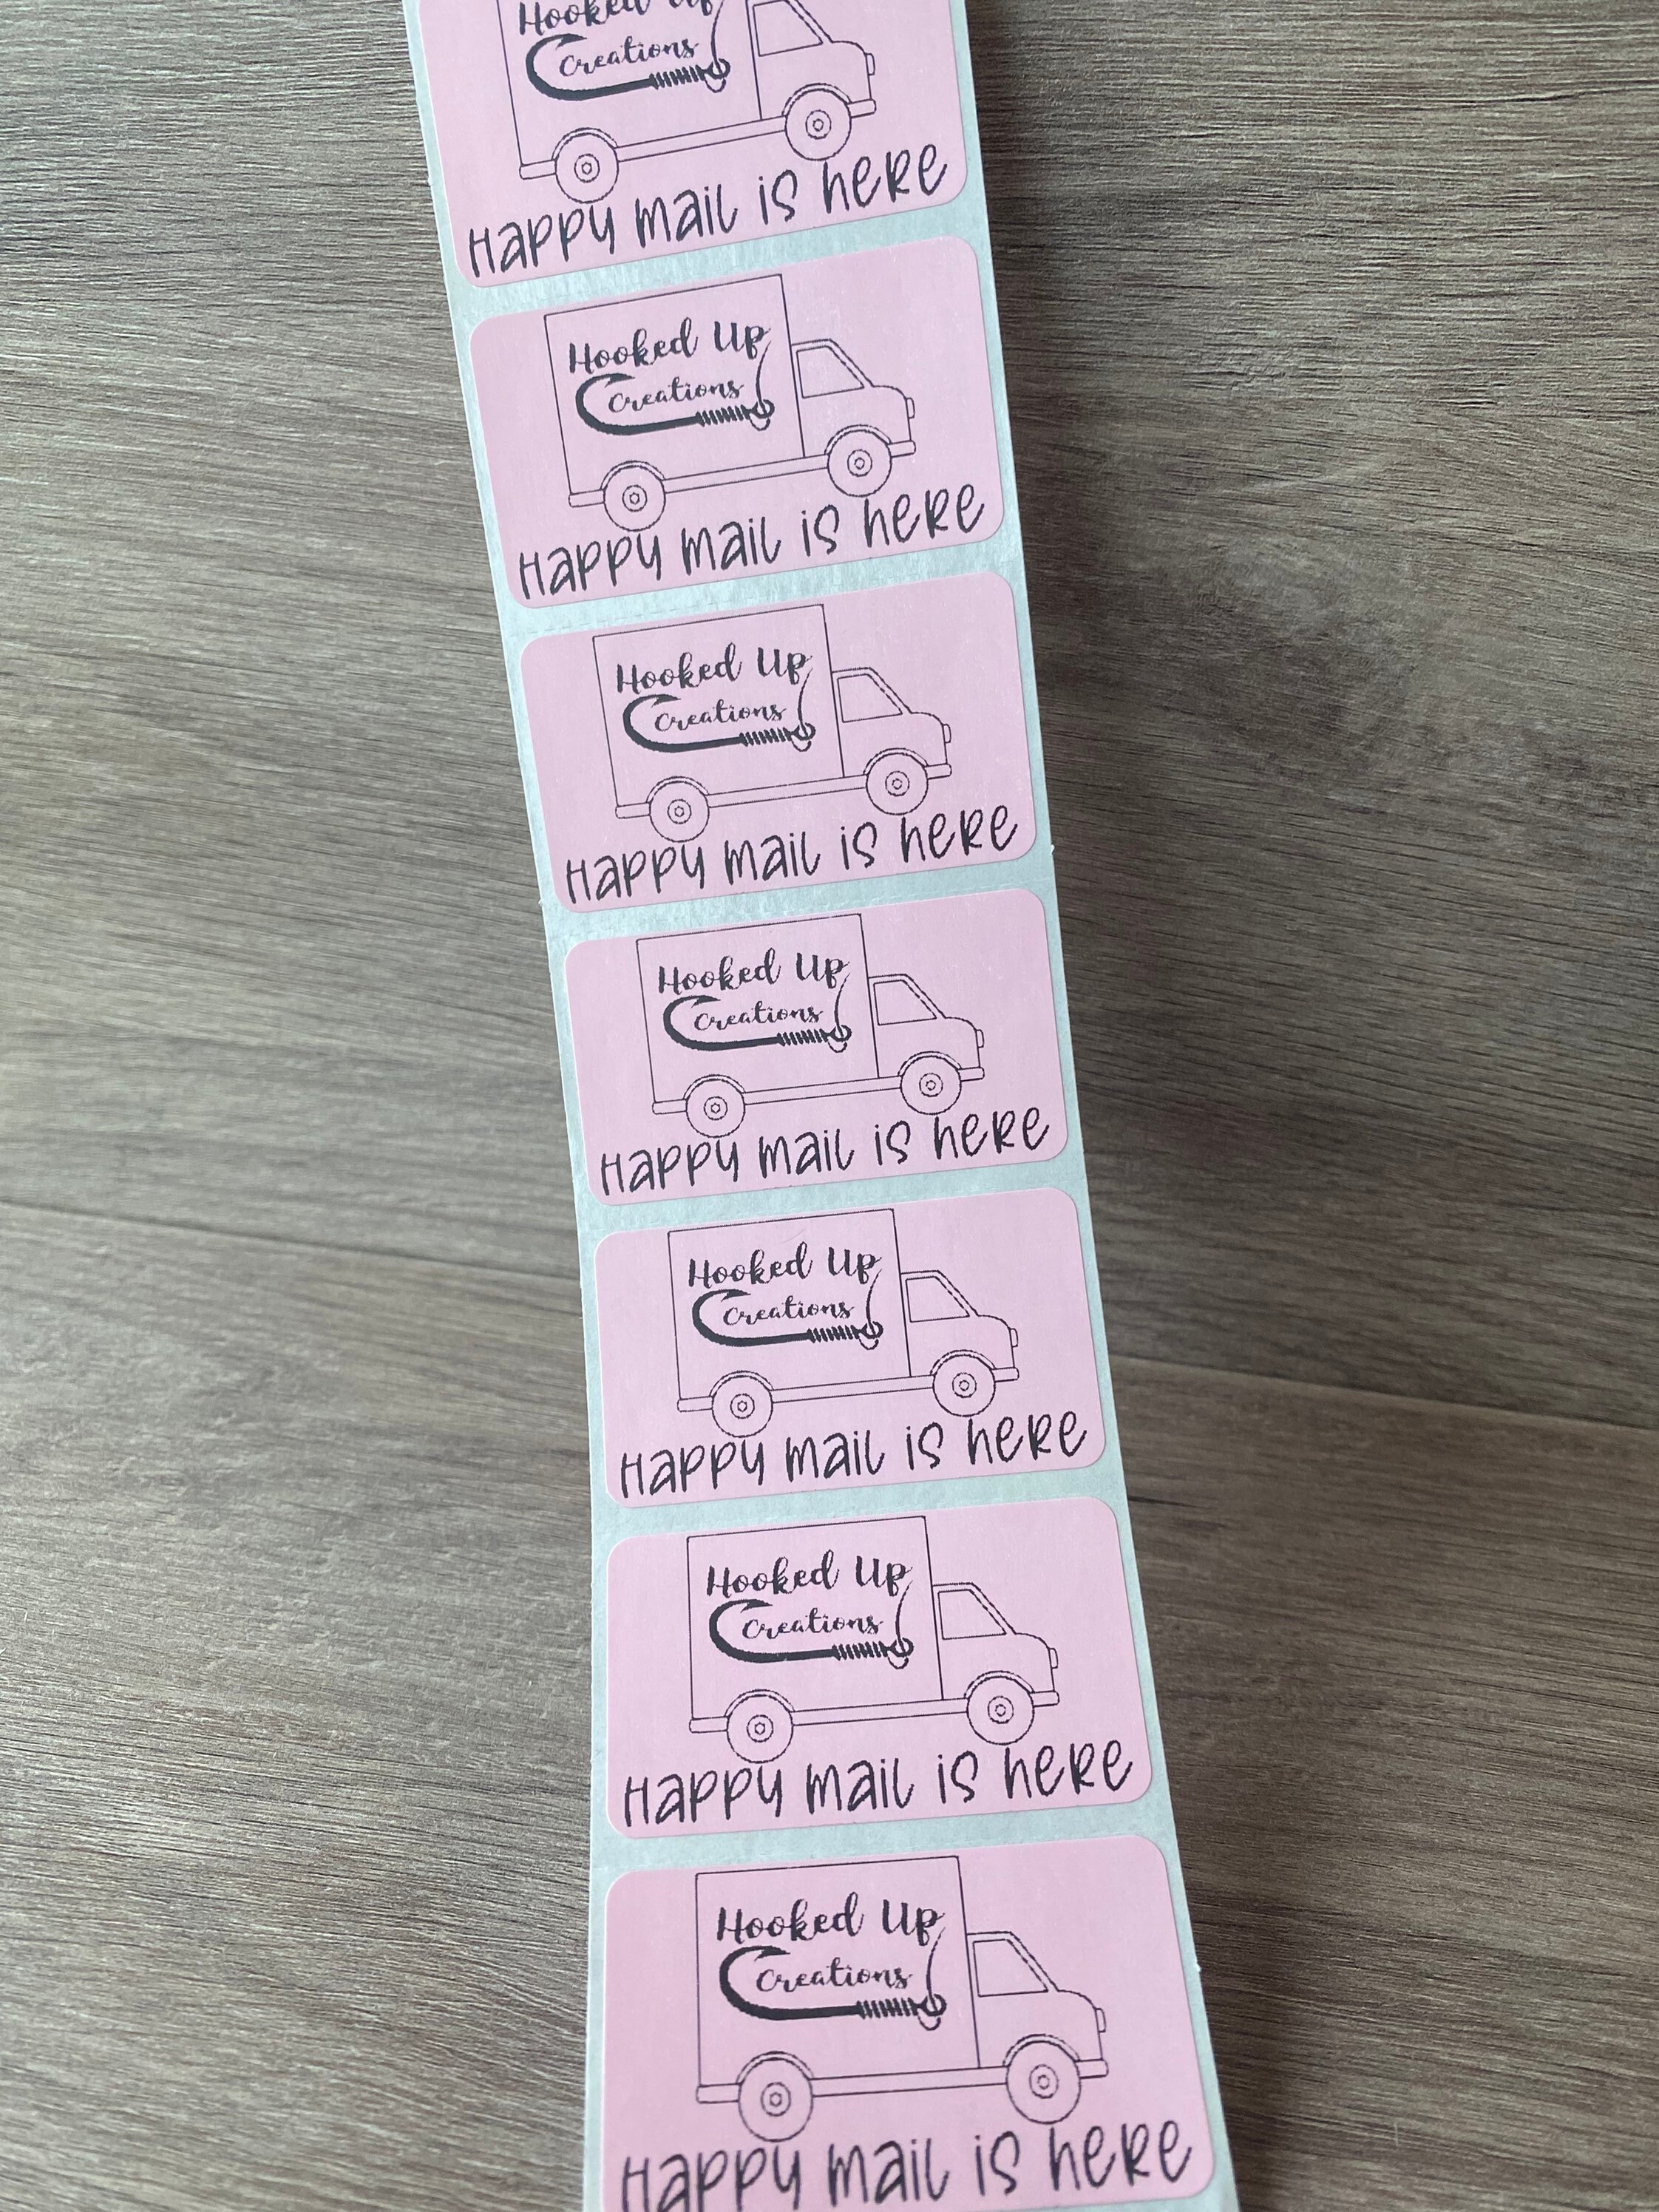 Hooked Up
Creations
Happy mail is here
Hooked Up
Creations
Happy mail is here
Hooked Up
Creations
Happy mail is here
Hooked Up
Creations
Happy mail is here
Hooked Up
Creations
Happy mail is here
Hooked Up
Creations
Happy mail is here
Hooked Up
Creations
Happy mail is here